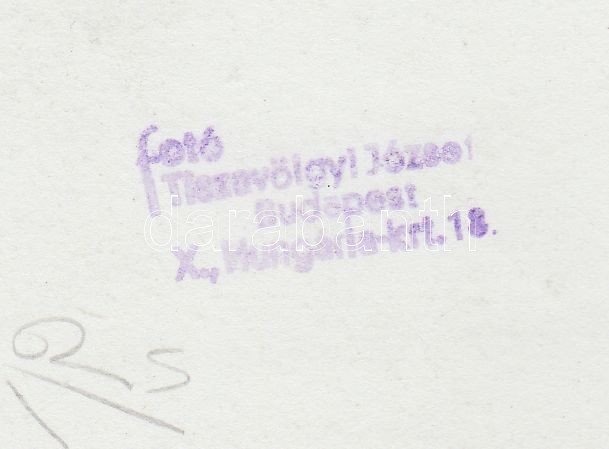 fotó
Tiszavölgyi József
Budapest
X., Hungária-krt. 18.
darabanth